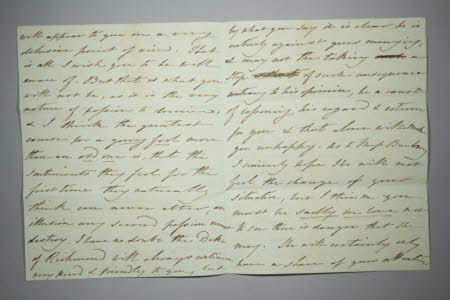 will appear to you in a very
delusive point of view. That
is all I wish you to be well
aware of. But that is what you
will not be, as it is the very
nature of passion to deceive;
& I think the greatest
excuse for a young fool more
than an old one is, that the
sentiments they feel for the
first time they naturally
think can never alter, an
illusion any second passion must
destroy. I have no doubt the Duke
of Richmond will always continue
very kind & friendly to you, but
by what you say it is clear he is
entirely against your marrying,
& may not the taking a
step of such consequence
contrary to his opinion, be a cause
of losing his regard & esteem
for you & that alone will make
you unhappy. As to Miss Bunbury
I sincerely hope she will not
feel the change of your
situation, but I think you
must be sadly in love not
to see there is danger that she
may. She will certainly only
have a share of your attention